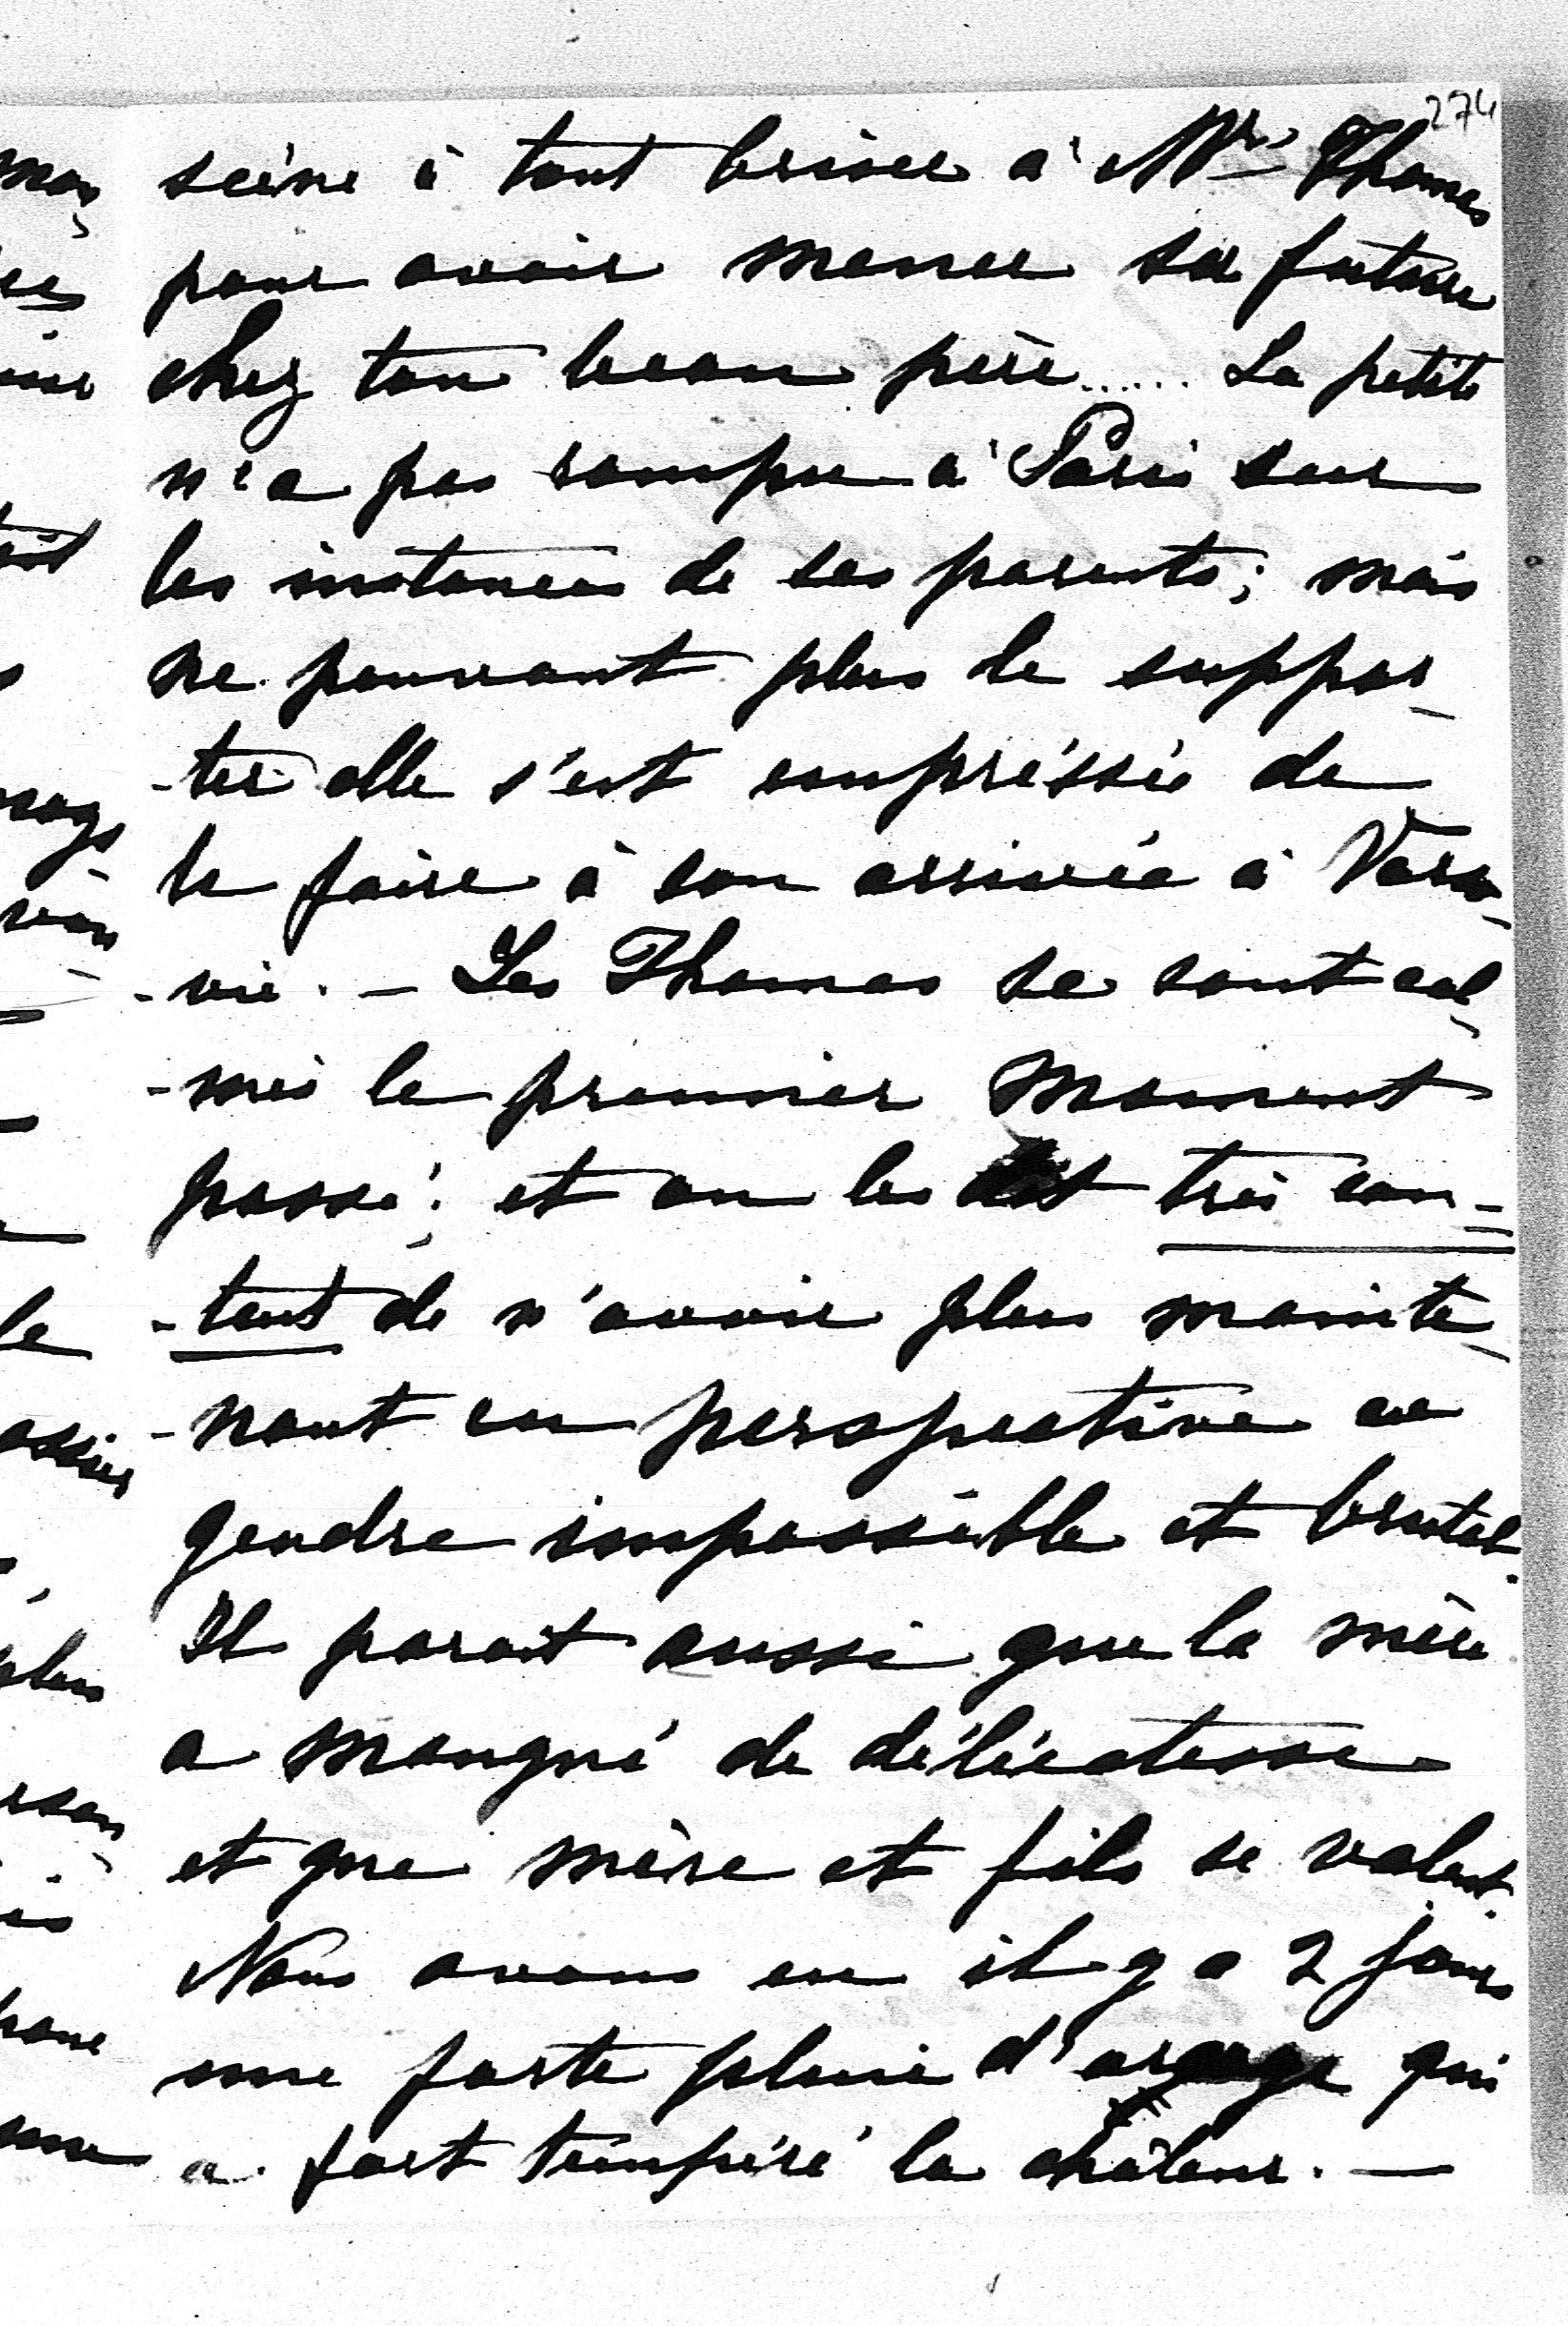 274
scène à tout briser à Mr Thomas
pour avoir mener sa future
chez ton beau père...... La petite
n'a pas rompu à Paris sur
les instances de ses parents; mais
ne pouvant plus le suppor-
-ter elle s'est empréssée de
le faire à son arrivée à Varso-
-vie. - Les Thomas se sont cal-
-més le premier moment
passé; et on les dit très con-
-tent de n'avoir plus mainte-
-nant en perspective ce
gendre impossible et brutal.
Il parait aussi que la mère
a manqué de délicatesse
et que mère et fils se valent.
Nous avons eu il y a 2 jours
une forte pluie d'orage qui
a fort tempéré la châleur. -